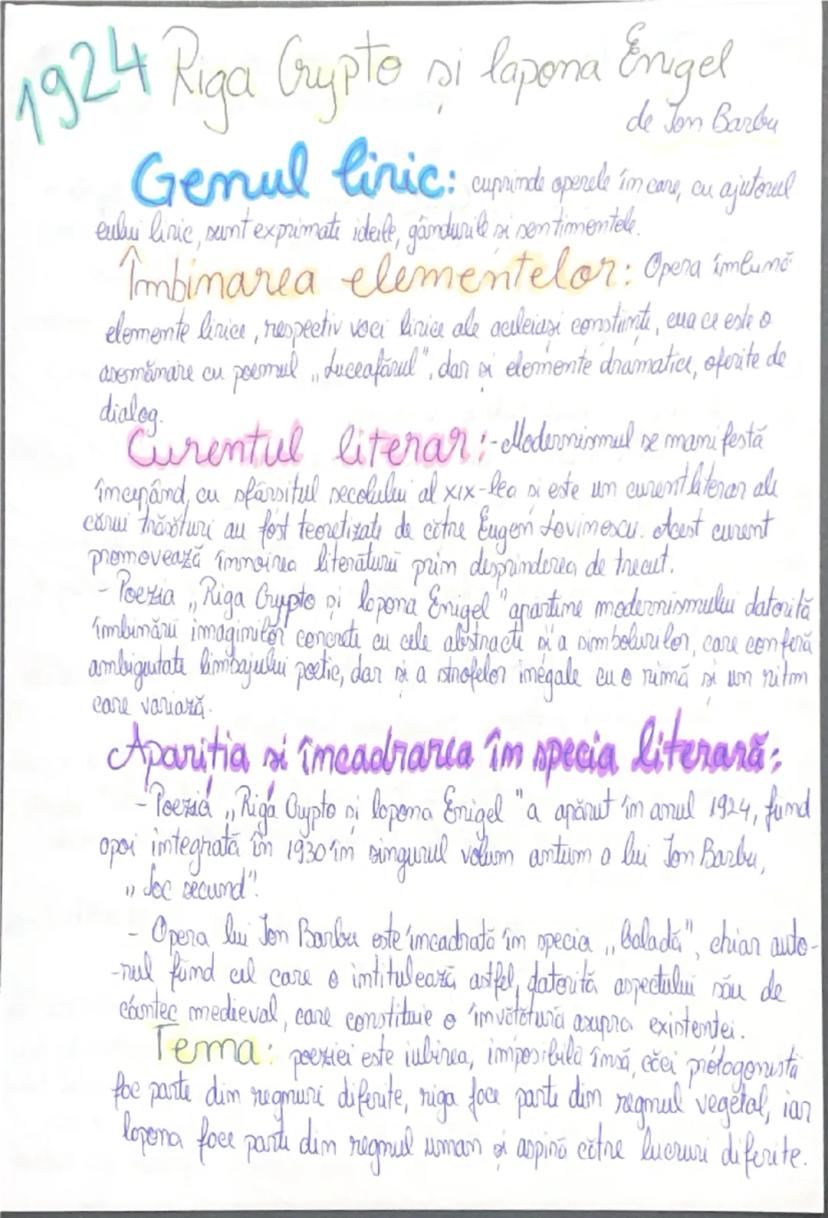 1924 Riga Crypto și lapona Enigel
de Ion Barbu
Genul liric: cuprinde operele în care, cu ajutorul
eului liric, sunt exprimate ideile, gândurile și sentimentele.
Îmbinarea elementelor: Opera îmbină
elemente lirice, respectiv voci lirice ale aceleiași conștiințe, ceea ce este o
asemănare cu poemul „Luceafărul", dar și elemente dramatice, oferite de
dialog.
Curentul literar: - Modernismul se manifestă
începând cu sfârșitul secolului al XIX-lea și este un curent literar ale
cărui trăsături au fost teoretizate de către Eugen Lovinescu. Acest curent
promovează înnoirea literaturii prin desprinderea de trecut.
- Poezia „Riga Crypto și lapona Enigel" aparține modernismului datorită
îmbinării imaginilor concrete cu cele abstracte și a simbolurilor, care conferă
ambiguitate limbajului poetic, dar și a strofelor inegale cu o rimă și un ritm
care variază.
Apariția și încadrarea în specia literară:
- Poezia „Riga Crypto și lapona Enigel" a apărut în anul 1924, fiind
apoi integrată în 1930 în singurul volum antum a lui Ion Barbu,
„Joc secund".
- Opera lui Ion Barbu este încadrată în specia „baladă", chiar auto-
-rul fiind cel care o intitulează astfel, datorită aspectului său de
cântec medieval, care constituie o învățătură asupra existenței.
Tema: poeziei este iubirea, imposibilă însă, căci protagoniștii
fac parte din regnuri diferite, riga face parte din regnul vegetal, iar
lapona face parte din regnul uman și aspiră către lucruri diferite.